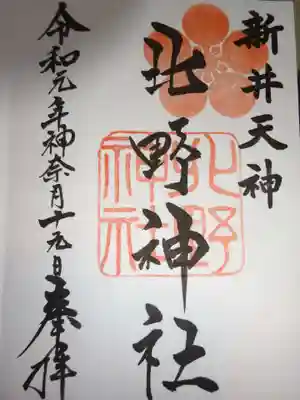 新井天神
北野神社
北野
神社
令和元年神奈月十九日
奉拝